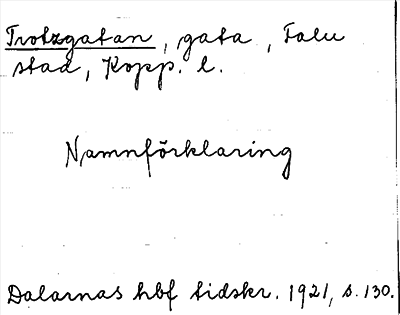 Trotzgatan, gata, Falu
stad, Kopp. l.
Namnförklaring
Dalarnas hbf tidskr. 1921, s. 130.